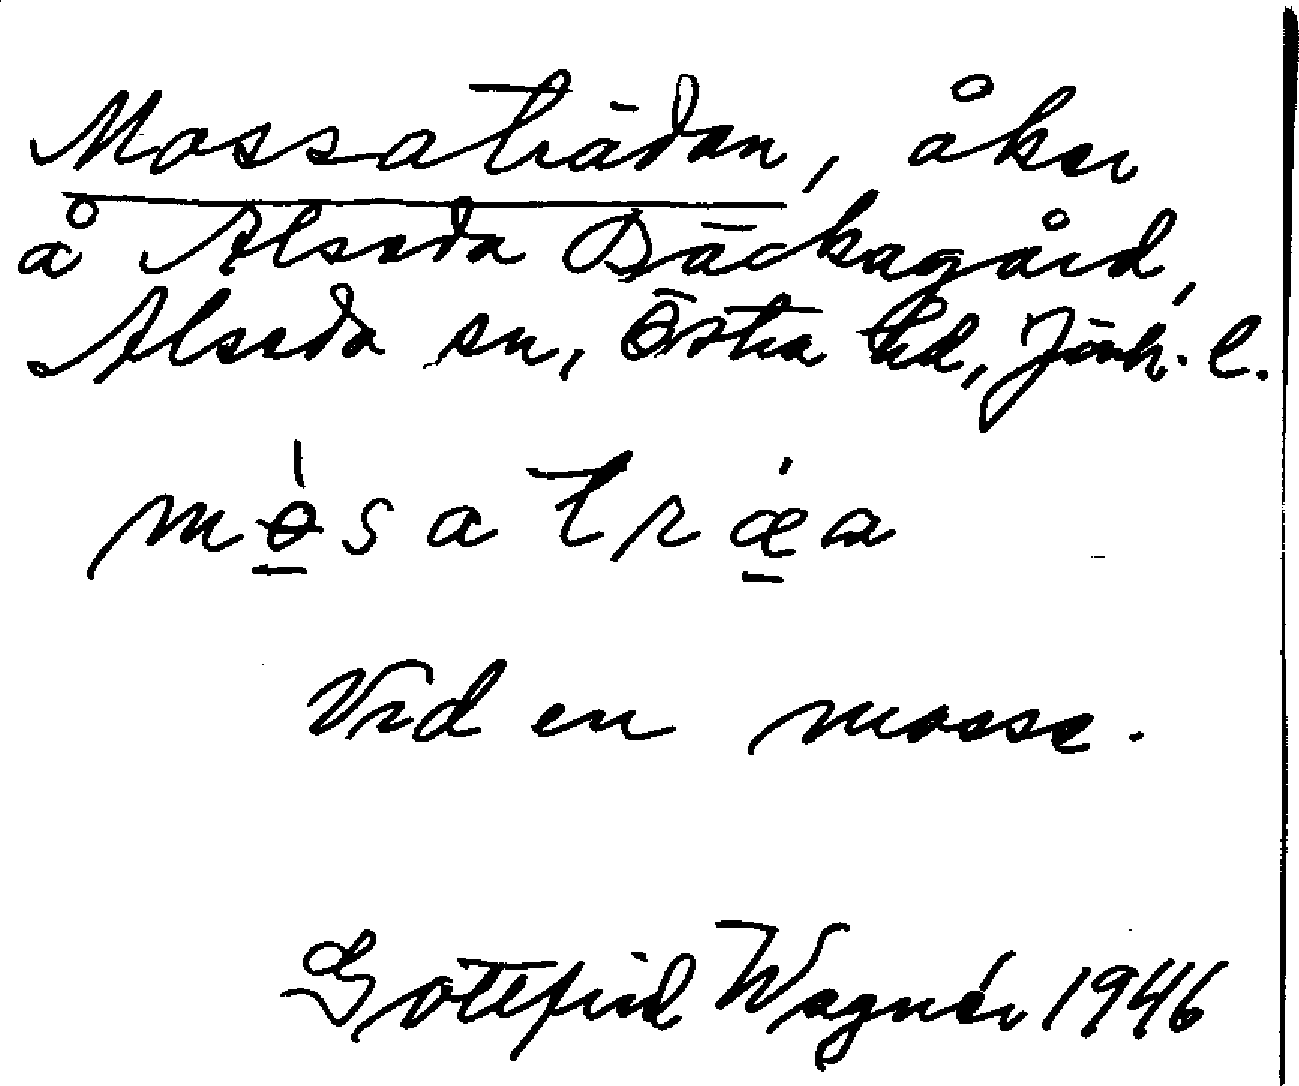 Mossaträdan, åker
å Alseda Bäckagård,
Alseda sn, Östra hd, Jönk. l.
mɵ̀satræa
Vid en mosse.
Gottfrid Wagnér 1946